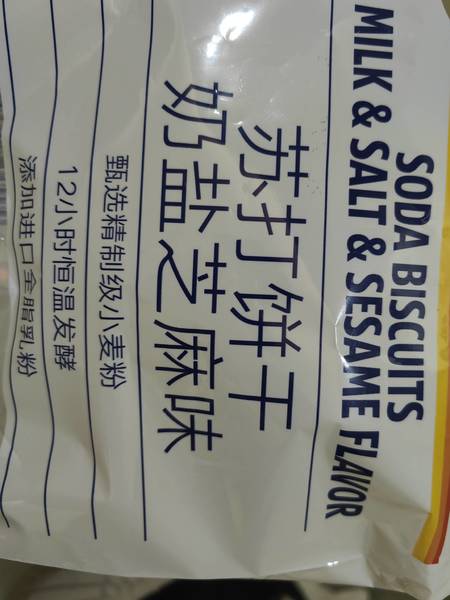 SODA BISCUITS
MILK & SALT & SESAME FLAVOR
苏打饼干
奶盐芝麻味
甄选精制级小麦粉
12小时恒温发酵
添加进口全脂乳粉